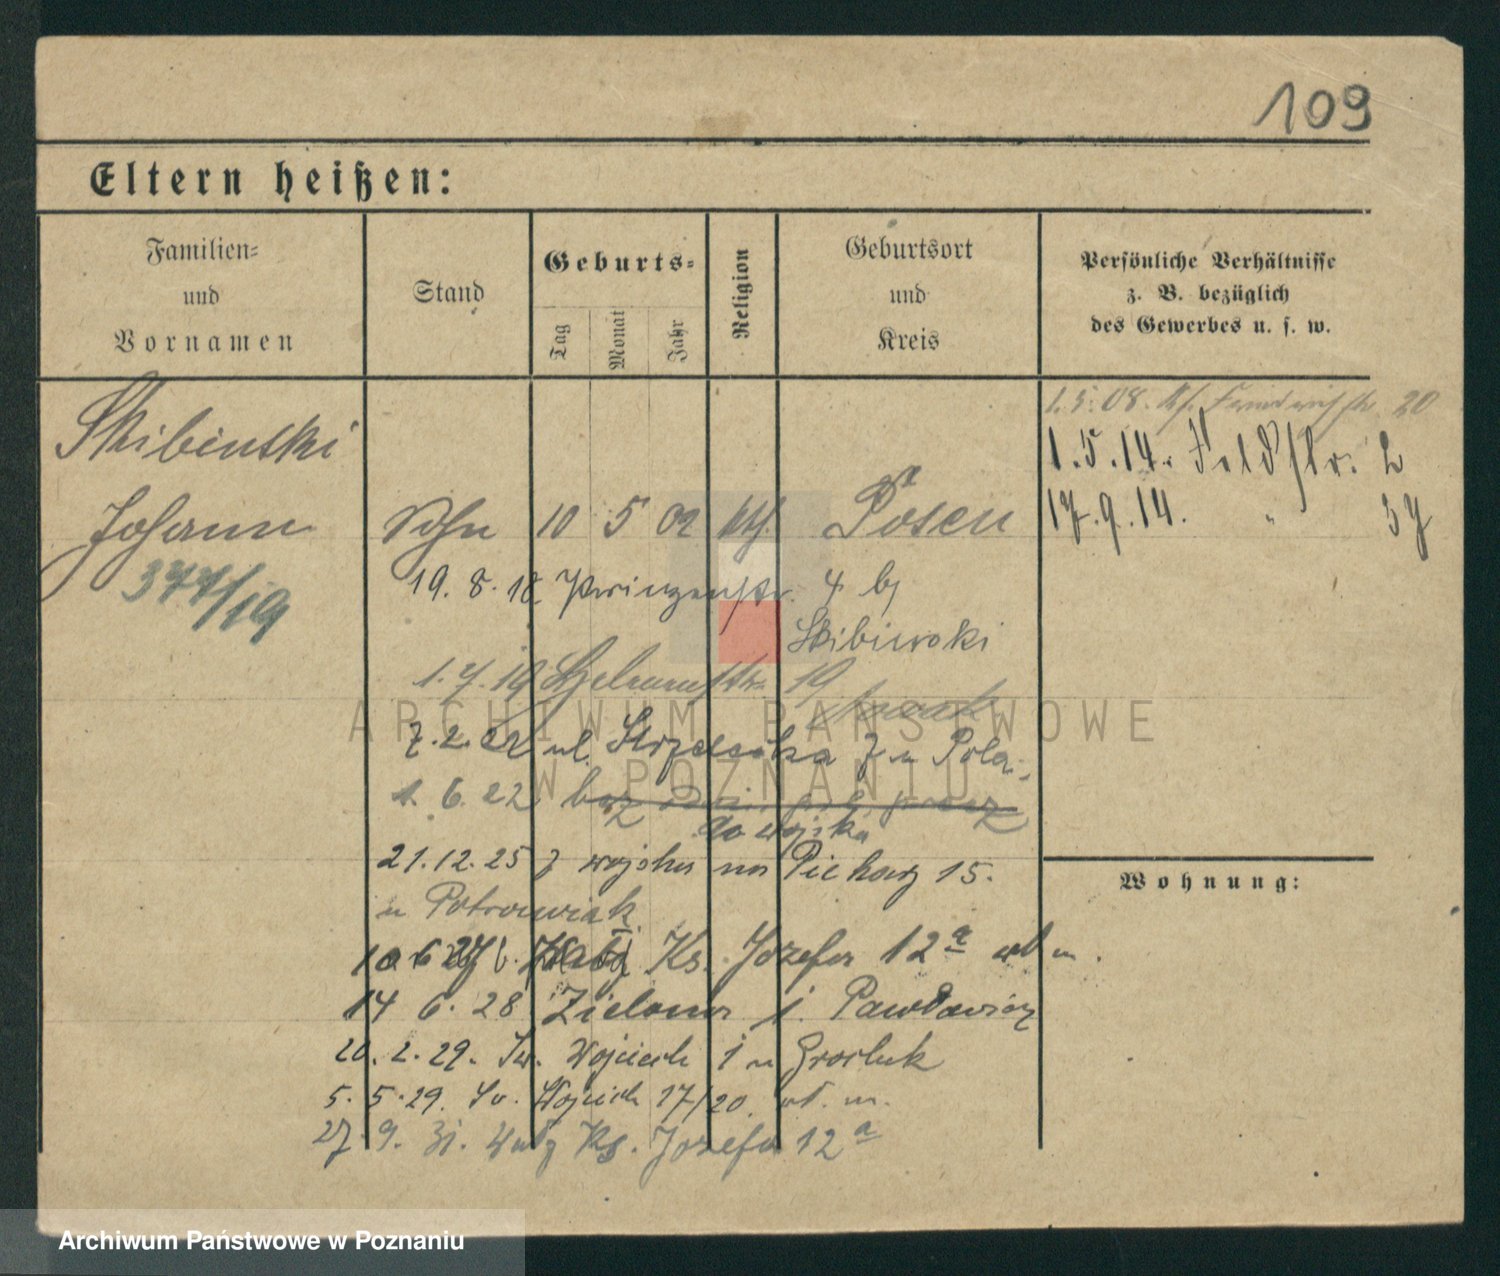 109
Eltern heißen:
Familien= und Vornamen
Stand
Geburts=
Tag
Monat
Jahr
Religion
Geburtsort und Kreis
Persönliche Verhältnisse z. B. bezüglich des Gewerbes u. s. w.
1.5.08. 20
Skibinski
1.5.14. Feldstr. 2
Johann Sohn 10 5 02 kth. Posen
17.9.14. " 57
377/19
19. 8. 18. Prinzenstr. 4 bj
Skibiwski
1. 7. 19 19
Nowak
7. 2. 22 ul. Strzelecka 7 u
1. 6. 22
do wojska
21. 12. 25 z wojska na Piekary 15.
u Potrawiak
Ks. Józefa 12 a wł m.
14 6. 28 Zielona 1.
20. 2. 29. Św. Wojciech 1 u
5. 5. 29. Św. Wojciech 17/20 wł. m.
27. 9. 31. Ks. Józefa 12 a
Wohnung:
ARCHIWUM PAŃSTWOWE
W POZNANIU
Archiwum Państwowe w Poznaniu